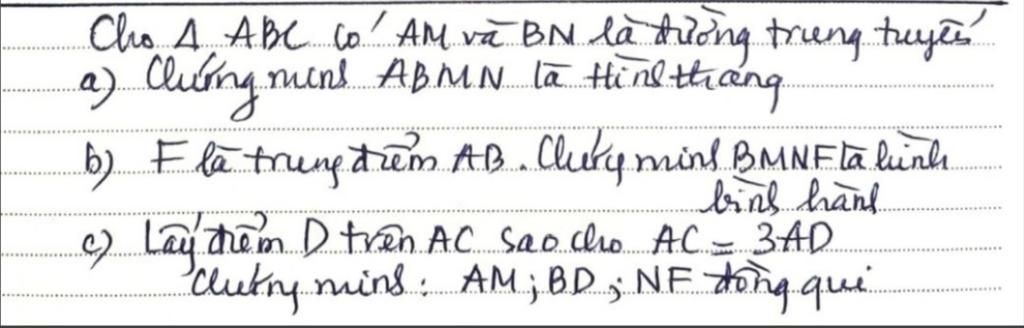 Cho Δ ABC có AM và BN là đường trung tuyến
a) Chứng minh ABMN là Hình thang
b) F là trung điểm AB. Chứng minh BMNF là hình
bình hành
c) Lấy điểm D trên AC sao cho AC = 3AD
Chứng minh: AM; BD; NF đồng qui